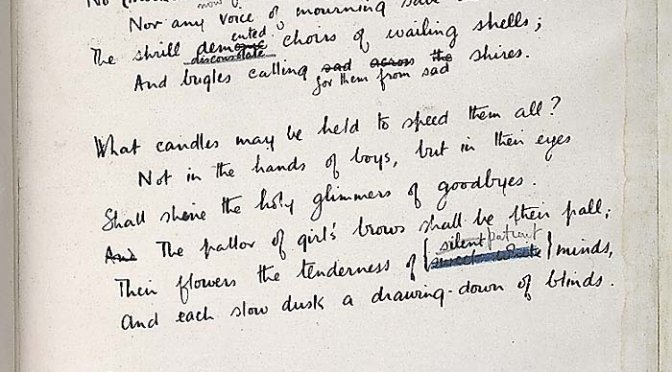 No
Nor any voice of mourning save
ented
The shrill dem choirs of wailing shells;
disconsolate
And bugles calling sad across the shires.
for them from sad
What candles may be held to speed them all?
Not in the hands of boys, but in their eyes
Shall shine the holy glimmers of goodbyes.
And The pallor of girl's brows shall be their pall;
silent patient
Their flowers the tenderness of { } minds,
And each slow dusk a drawing-down of blinds.